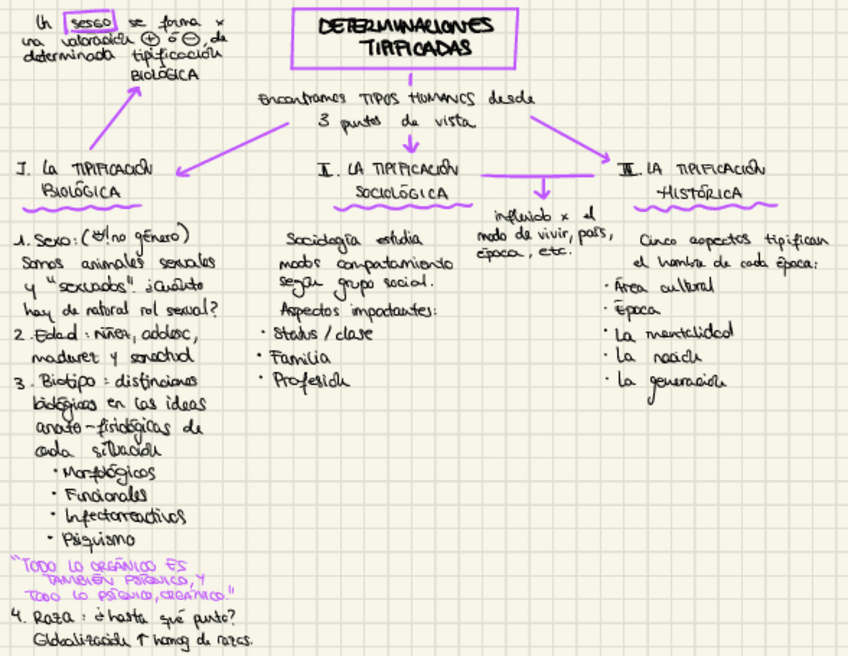 Un SESGO se forma x
una valoración ⊕ ó ⊖, de
determinada tipificación
BIOLÓGICA
DETERMINACIONES
TIPIFICADAS
Encontramos TIPOS HUMANOS desde
3 puntos de vista
I. La TIPIFICACIÓN
BIOLÓGICA
1. Sexo: (no género)
Somos animales sexuales
y "sexuados". ¿Cuánto
hay de natural rol sexual?
2. Edad: niñez, adolesc,
madurez y senectud
3. Biotipo: distinciones
biológicas en las ideas
anato-fisiológicas de
cada situación
· Morfológicos
· Funcionales
· Infectorreactivos
· Psiquismo
"TODO LO ORGÁNICO ES
TAMBIÉN PSÍQUICO, Y
TODO LO PSÍQUICO, ORGÁNICO."
4. Raza: ¿hasta qué punto?
Globalización ↑ homog de razas.
II. LA TIPIFICACIÓN
SOCIOLÓGICA
Sociología estudia
modos comportamiento
según grupo social.
Aspectos importantes:
· Status / clase
· Familia
· Profesión
influido x el
modo de vivir, país,
época, etc.
III. LA TIPIFICACIÓN
HISTÓRICA
Cinco aspectos tipifican
el hombre de cada época:
· Área cultural
· Época
· La mentalidad
· La nación
· La generación